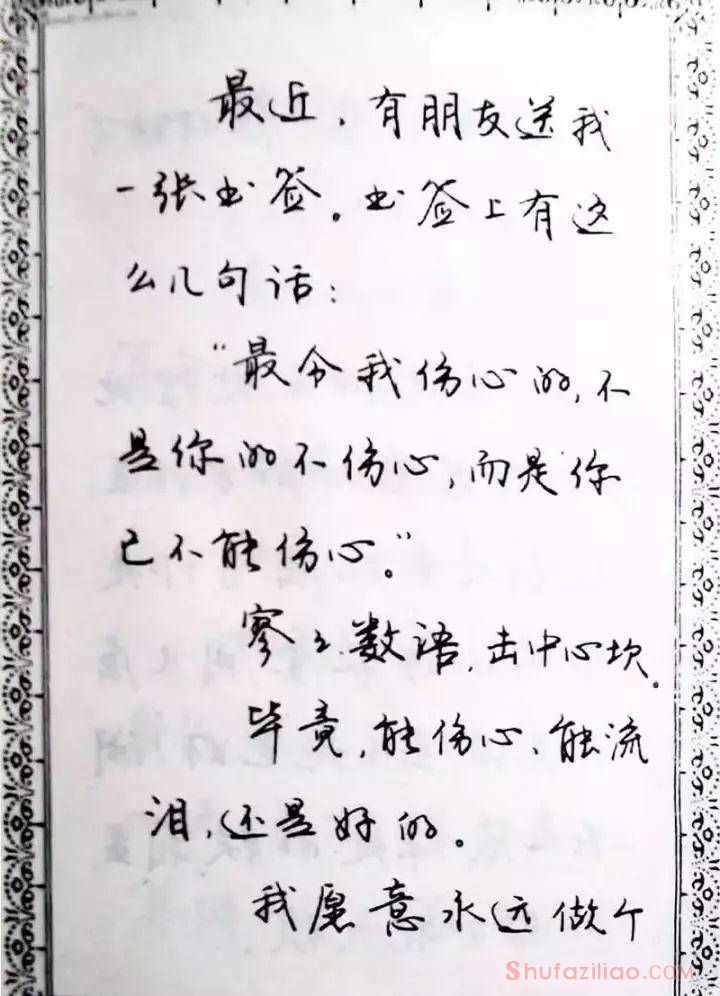 最近，有朋友送我
一张书签。书签上有这
么几句话：
“最令我伤心的，不
是你的不伤心，而是你
已不能伤心。”
寥寥数语，击中心坎。
毕竟，能伤心、能流
泪，还是好的。
我愿意永远做个
Shufaziliao.COM